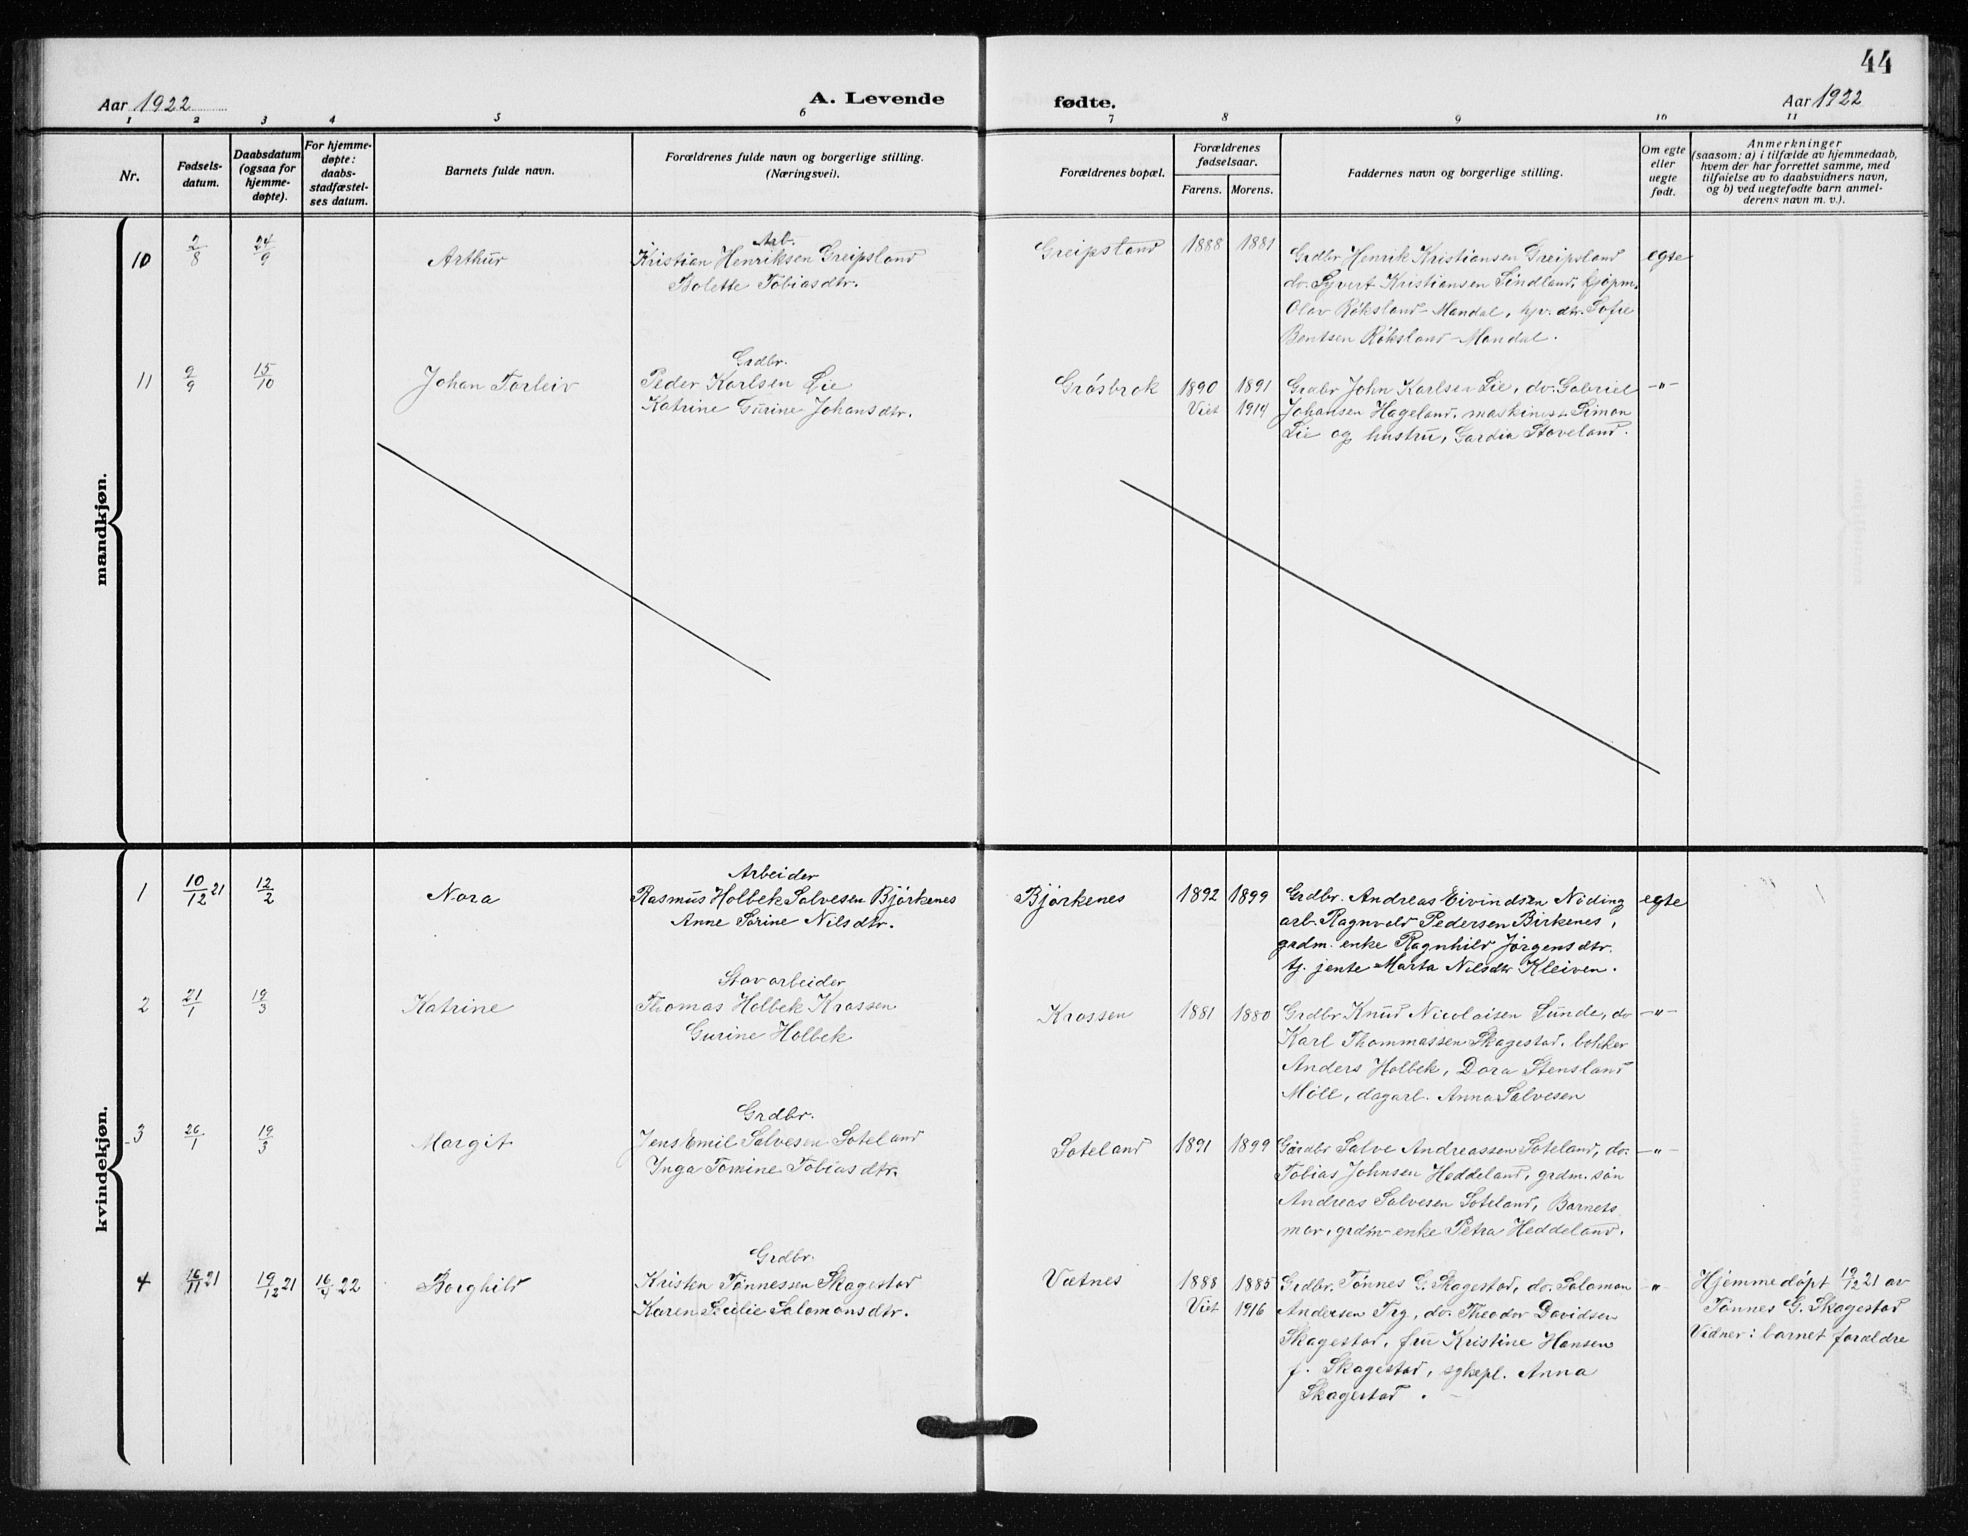 44
Aar 1922 A. Levende fødte. Aar 1922
1 2 3 4 5 6 7 8 9 10 11
Nr.
Fødsels-
datum.
Daabsdatum
(ogsaa for
hjemme-
døpte).
For hjemme-
døpte:
daabs-
stadfæstel-
ses datum.
Barnets fulde navn.
Forældrenes fulde navn og borgerlige stilling.
(Næringsvei).
Forældrenes bopæl.
Forældrenes
fødselsaar.
Farens. Morens.
Faddernes navn og borgerlige stilling.
Om egte
eller
uegte
født.
Anmerkninger
(saasom: a) i tilfælde av hjemmedaab,
hvem der har forrettet samme, med
tilføielse av to daabsvidners navn,
og b) ved uegtefødte barn anmel-
derens navn m. v.).
mandkjøn.
10 2/8 24/9 Arthur
Arb.
Kristian Henriksen Greipsland
Bolette Tobiasdtr.
Greipsland 1888 1881
Grdbr Henrik Kristiansen Greipsland
do. Syvert Kristiansen Lindland, kjøpm.
Olav Røksland-Mandal, hjv. dtr. Sofie
Bentsen Røksland-Mandal.
egte
11 2/9 15/10 Johan Torleiv
Grdbr.
Peder Karlsen Lie
Katrine Gurine Johansdtr.
Gråsbrok 1890 1891
Viet 1914
Grdbr John Karlsen Lie, do. Gabriel
Johansen Hageland, maskinist Simon
Lie og hustru, Gardia Staveland.
-"-
kvindekjøn.
1 10/12 21 12/2 Nora
Arbeider
Rasmus Holbek Salvesen Bjørkenes
Anne Sørine Nilsdtr.
Bjørkenes 1892 1899
Grdbr. Andreas Eivindsen Nøding
arb. Ragnvald Pedersen Birkenes,
grdm. enke Ragnhild Jørgensdtr.
tj. jente Marta Nilsdtr Kleiven.
egte
2 21/1 19/3 Katrine
Stavarbeider
Thomas Holbek Krossen
Gurine Holbek
Krossen 1881 1880
Grdbr Knud Nicolaisen Sunde, do
Karl Thommassen Skagestad, bøkker
Anders Holbek, Dora Stensland
Møll, dagarb. Anna Salvesen
-"-
3 26/1 19/3 Margit
Grdbr.
Jens Emil Salvesen Soteland
Inga Tomine Tobiasdtr.
Soteland 1891 1899
Gardbr Salve Andreassen Soteland, do.
Tobias Johnsen Heddeland, grdm. søn
Andreas Salvesen Soteland, Barnets
mor, grdm-enke Petra Heddeland.
-"-
4 16/11 21 19/12 21 22 Borghild
Grdbr.
Kristen Tønnessen Skagestad
Karen Salomonsdtr.
Vætnes 1888 1885
Viet 1916
Grdbr. Tønnes G. Skagestad, do. Salomon
Andersen Trg, do. Theodor Davidsen
Skagestad, fru Kristine Hansen
f. Skagestad, sykepl. Anna
Skagestad.
-"-
Hjemmedøpt 19/12 21 av
Tønnes G. Skagestad
Vidner: barnet forældre